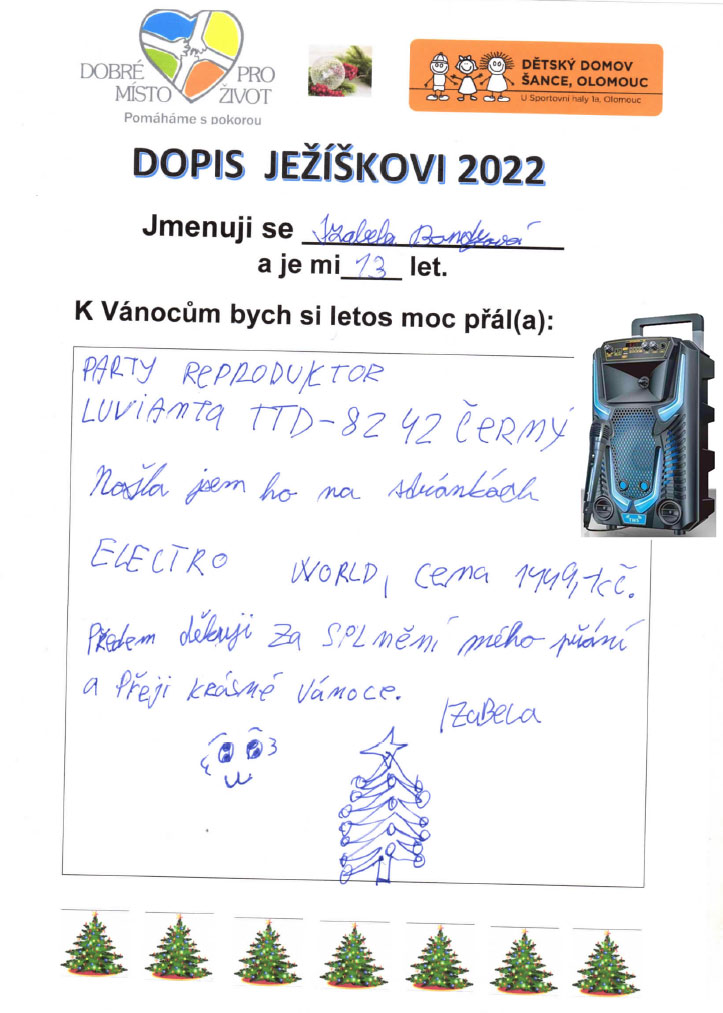 DOBRÉ PRO
MÍSTO ŽIVOT
Pomáháme s pokorou
DĚTSKÝ DOMOV
ŠANCE, OLOMOUC
U Sportovní haly 1a, Olomouc
DOPIS JEŽÍŠKOVI 2022
Jmenuji se Izabela
a je mi 13 let.
K Vánocům bych si letos moc přál(a):
PARTY REPRODUKTOR
LUVIANTA TTD-82 42 ČERNÝ
Našla jsem ho na stránkách
ELECTRO WORLD, cena 1449,-kč.
Předem děkuji za SPLnění mého přání
a Přeji krásné Vánoce.
IZaBela